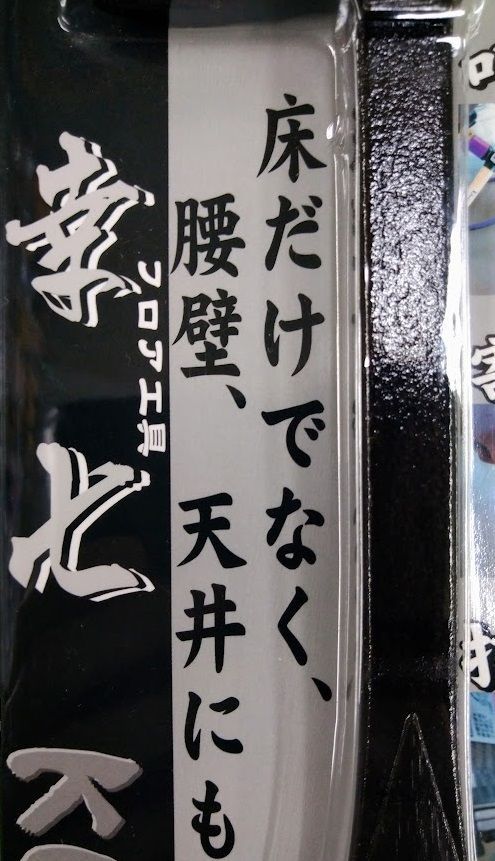 床だけでなく、
腰壁、天井にも
フロア工具
幸七
K